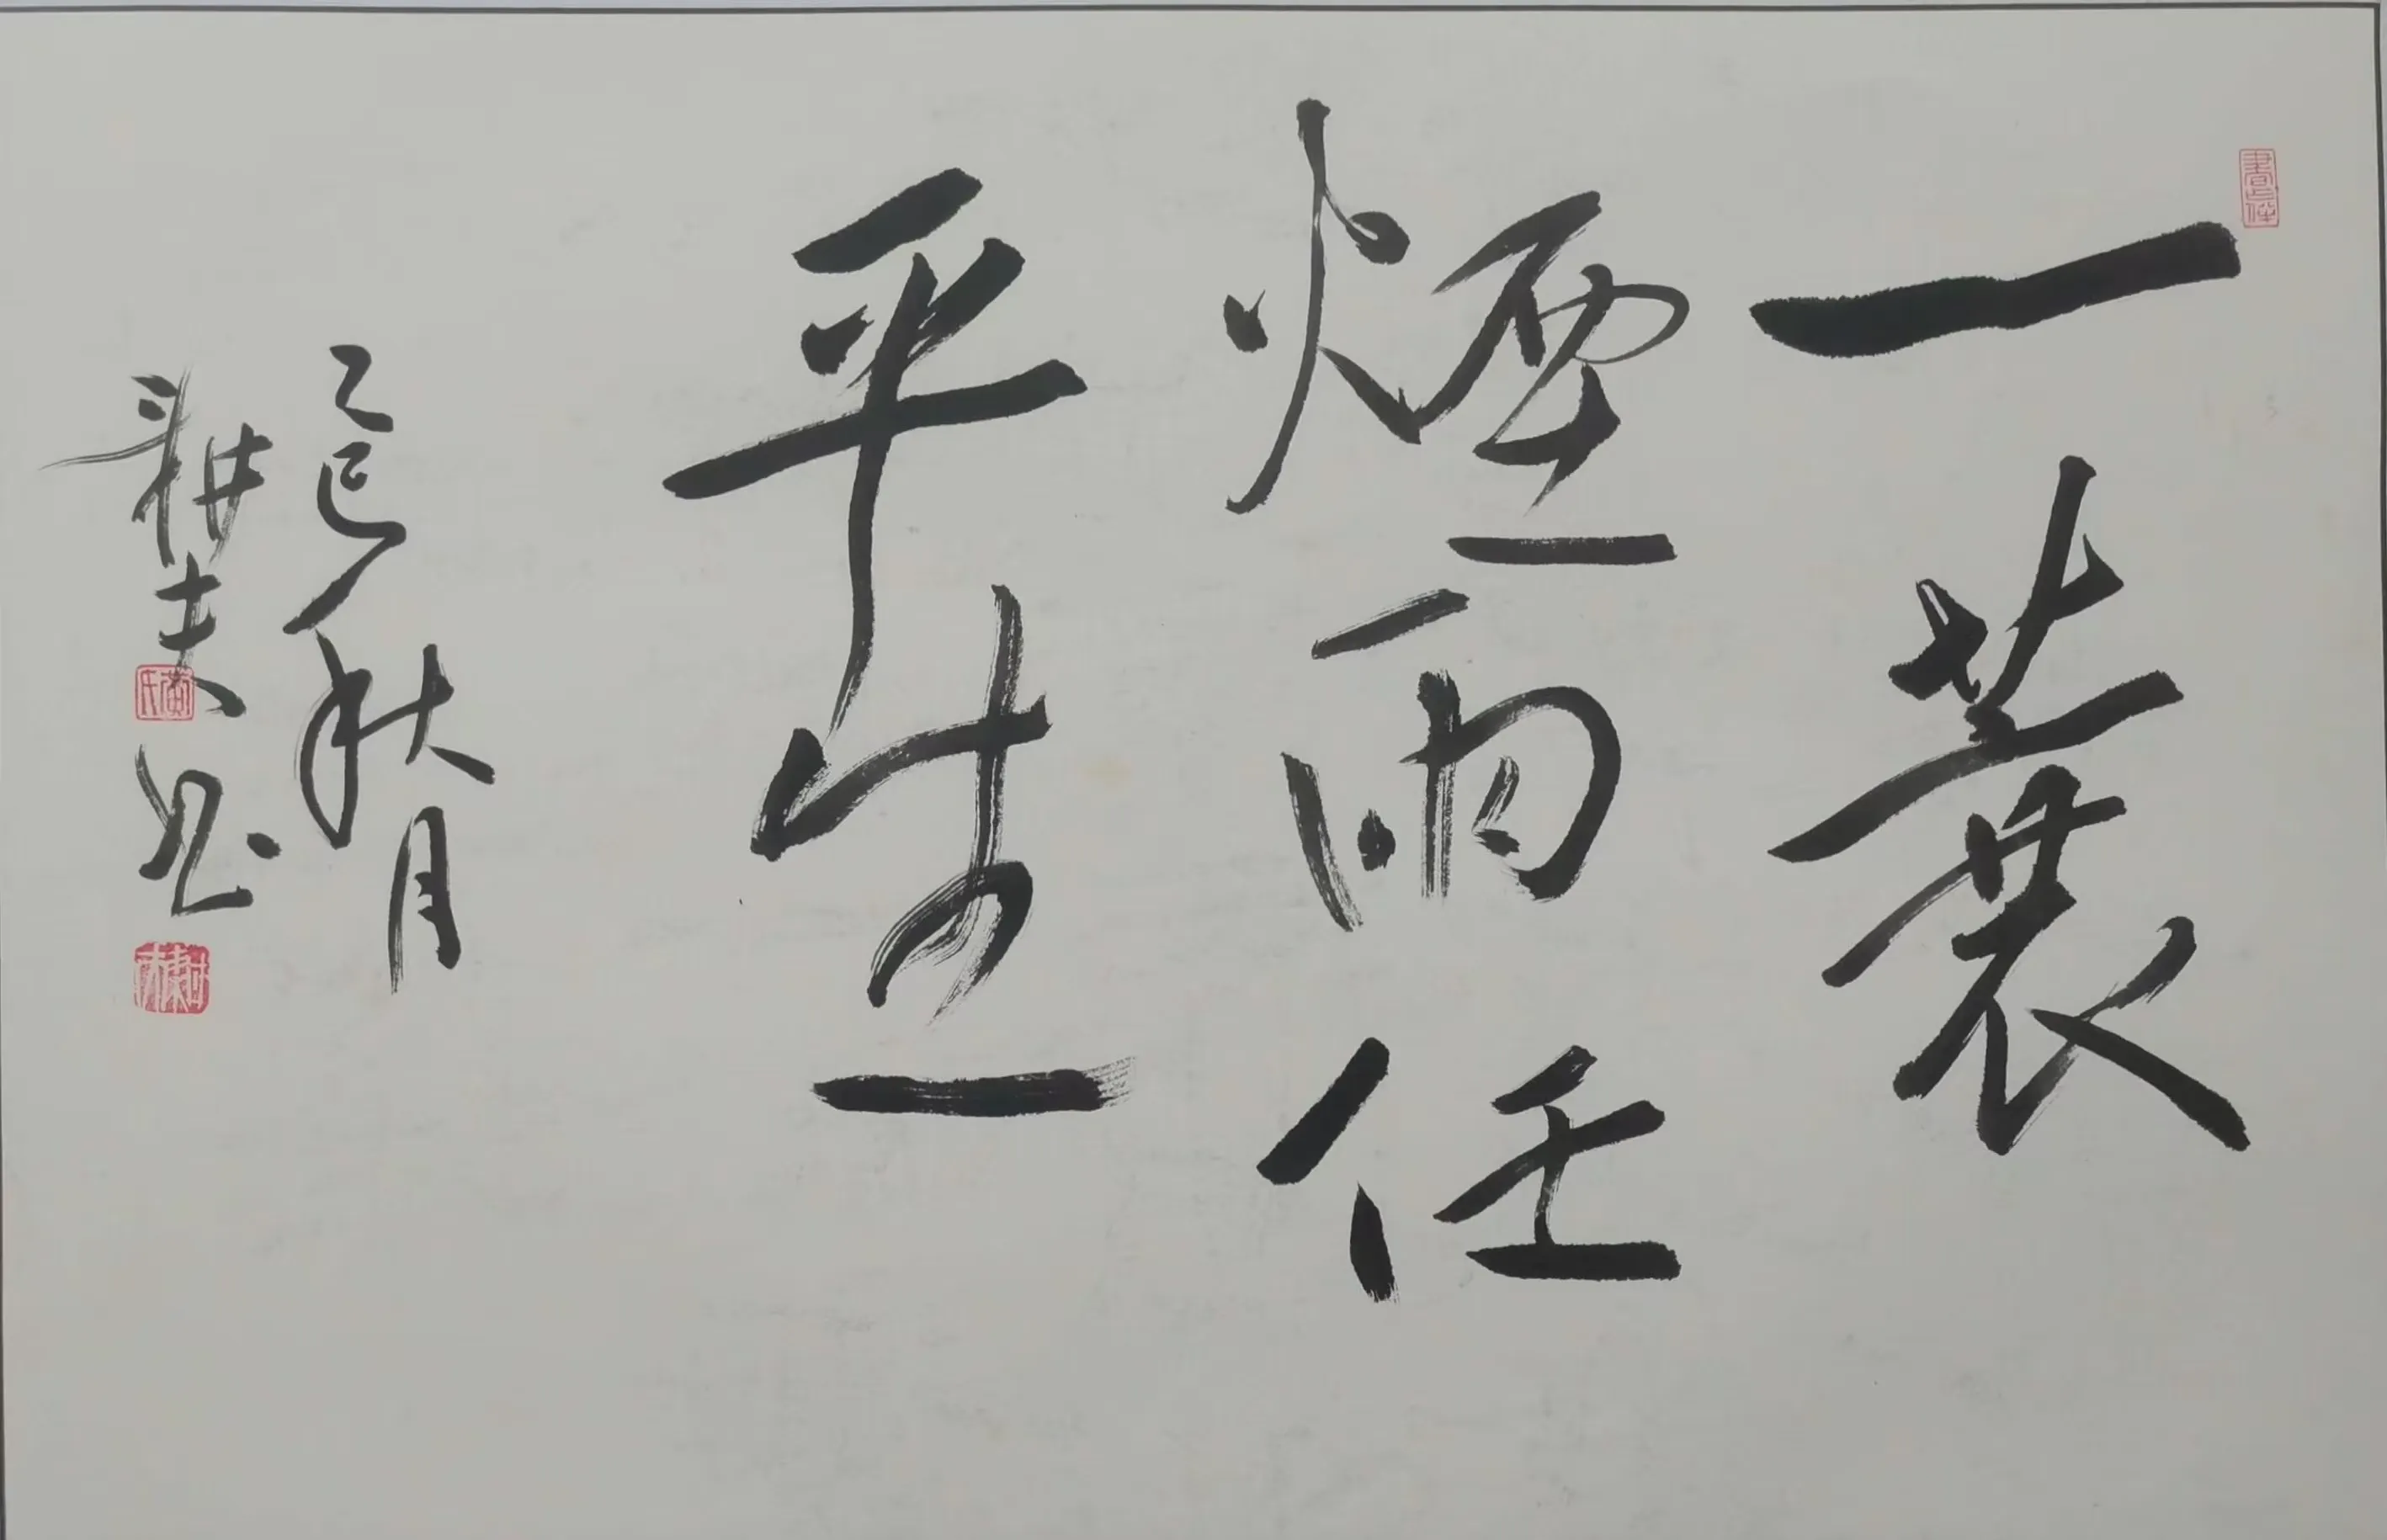 一蓑
煙雨任
平生
乙巳秋月
耕夫书